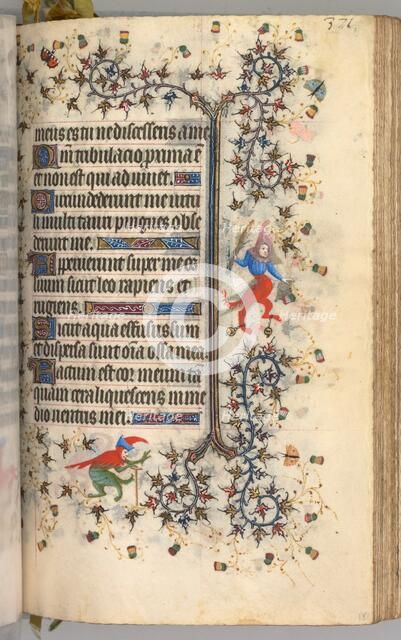 371
meus es tu ne discesseris a me
Qm tribulacio proxima e
et non est qui adiuuet.
Circundederunt me uitu
li multi tauri pingues obse
derunt me.
Aperuerunt super me os
suum sicut leo rapiens et
rugiens.
Sicut aqua effusus sum
et dispersa sunt oia ossa mea
Factum est cor meum ta
quam cera liquescens in me
dio uentris mei.
Heritage
Heritage
Heritage
heritage